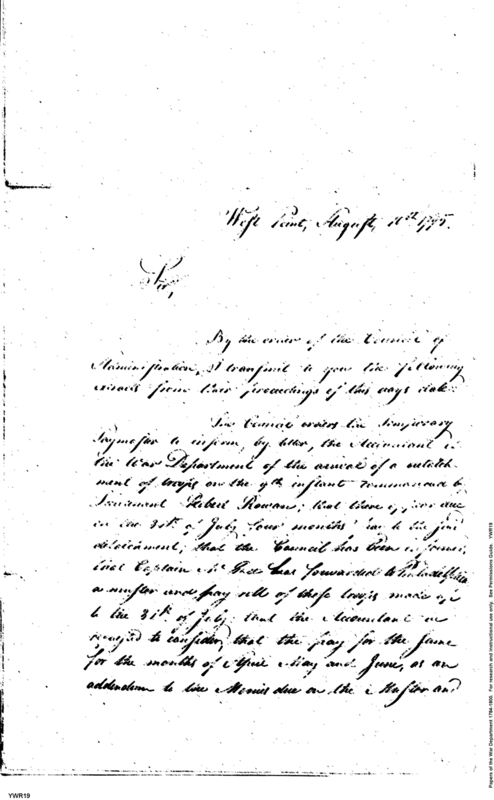 West Point, August, 11th 1795.
Sir,
By the order of the Council of
Administration, I transmit to you the following
extracts from their proceedings of this days date:
The Council orders the temporary
Paymaster to inform, by letter, the Accountant of
the War Department of the arrival of a detach-
ment of troops on the 9th instant commanded by
Lieutenant Robert Rowan; that there is, due
on the 31st of July four months' to the
detachment; that the Council has been informed,
that Captain has forwarded to Philadelphia
a muster and pay roll of those troops made up
to the 31st of July; that the Accountant be
required to consider, that the pay for the same
for the months of April May and June, as an
addendum to the Monies due on the Muster and
Papers of the War Department 1784-1800. For research and instructional use only. See Permissions Guide. YWR19
YWR19